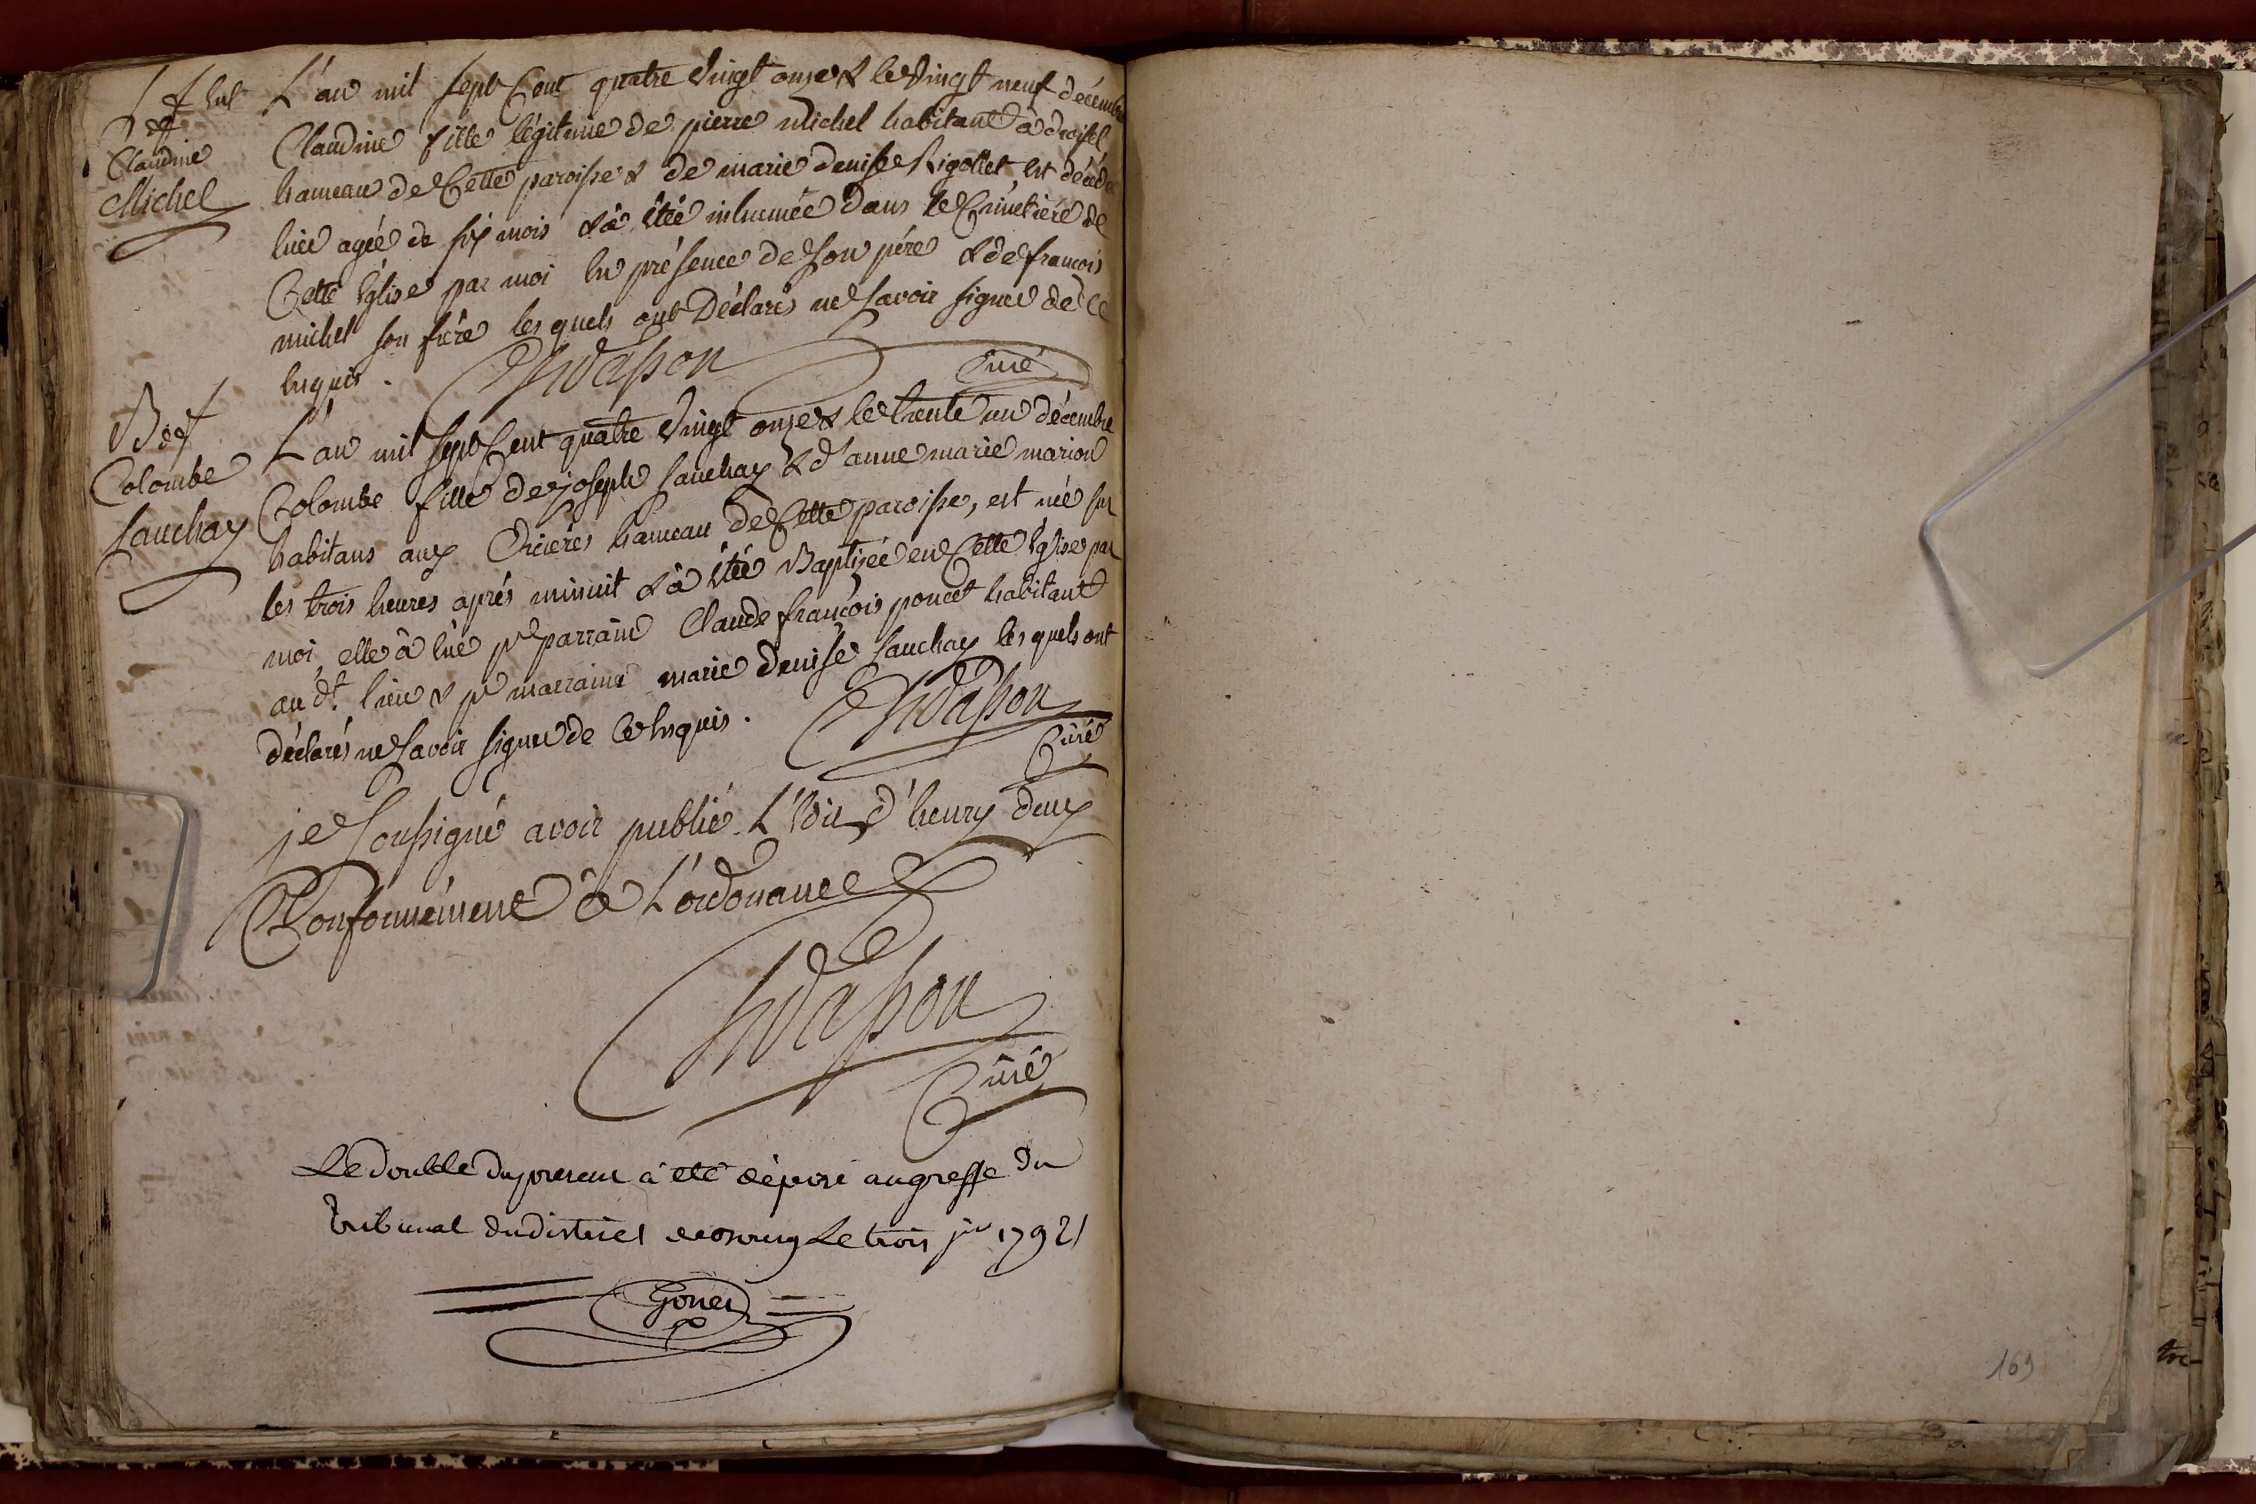 S f Enf
de
Claudine
Michel
L'an mil sept Cent quatre vingt onze & le vingt neuf décembre
Claudine fille légitime de pierre michel habitant à droisel
hameau de Cette paroisse & de marie denise Rigollet, est décédé
hier agée de six mois & à été inhumée dans le Cimetière de
Cette Eglise par moi En présence de son père & de francois
michel son frère lesquels ont Déclarés ne savoir signer de ce
Enquis. Chdasson Curé
B de f
Colombe
Sauchay
L'an mil sept Cent quatre vingt onze & le trente un décembre
Colombe fille de joseph Sauchay & d'anne marie marion
habitans aux hameau de Cette paroisse, est née sur
les trois heures après minuit & à été Baptizée en Cette Eglise par
moi, elle à Eue pr parrain Claude françois poncet habitant
au dt. lieu & pr marraine marie denise Sauchay lesquels ont
déclarés ne savoir signer de ce Enquis. Chdasson
Curé
je soussigné avoir publié L'Edit d'henry deux
Conformément à L'ordonance
Chdasson
Curé
Le double du present à été déposé au greffe du
tribunal du district Le trois jer 1792
Goner
169